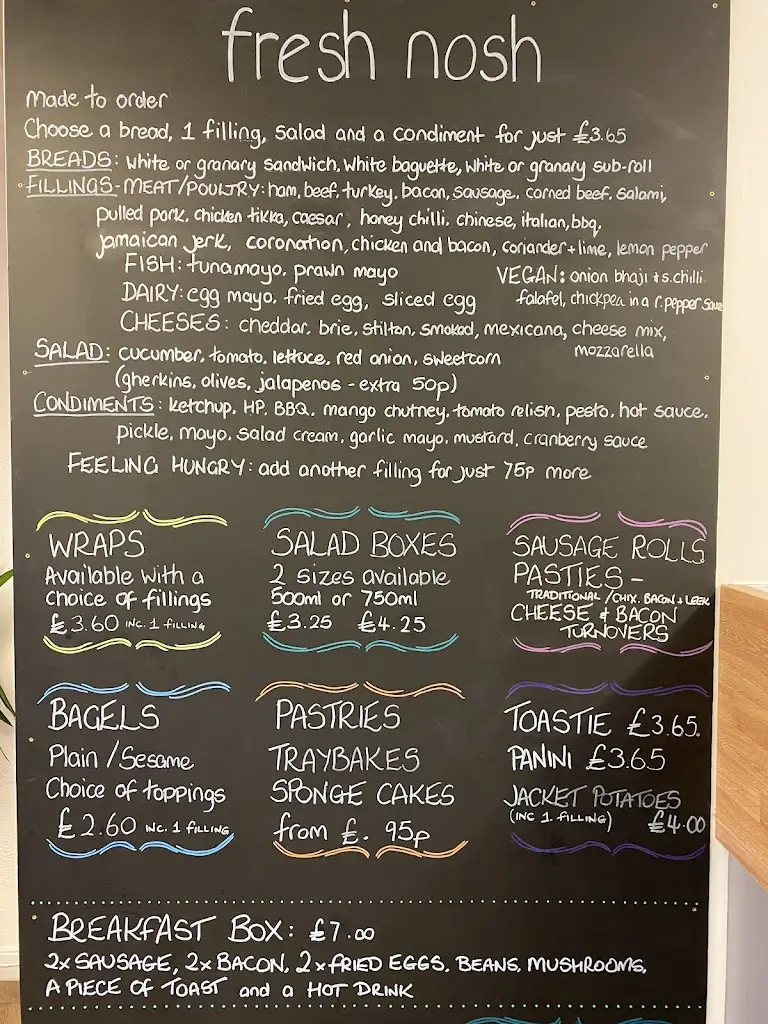 fresh nosh
Made to order
Choose a bread, 1 filling, salad and a condiment for just £3.65
BREADS: white or granary sandwich, white baguette, white or granary sub-roll
FILLINGS - MEAT/POULTRY: ham, beef, turkey, bacon, sausage, corned beef, salami,
pulled pork, chicken tikka, caesar, honey chilli, chinese, italian, bbq,
jamaican jerk, coronation, chicken and bacon, coriander + lime, lemon pepper
FISH: tuna mayo, prawn mayo
VEGAN: onion bhaji + s.chilli
DAIRY: egg mayo, fried egg, sliced egg
falafel, chickpea in a r.pepper sauce
CHEESES: cheddar, brie, stilton, smoked, mexicana, cheese mix,
mozzarella
SALAD: cucumber, tomato, lettuce, red onion, sweetcorn
(gherkins, olives, jalapenos - extra 50p)
CONDIMENTS: ketchup, HP, BBQ, mango chutney, tomato relish, pesto, hot sauce,
pickle, mayo, salad cream, garlic mayo, mustard, cranberry sauce
FEELING HUNGRY: add another filling for just 75p more
WRAPS
Available with a
choice of fillings
£3.60 INC. 1 FILLING
SALAD BOXES
2 sizes available
500ml or 750ml
£3.25 £4.25
SAUSAGE ROLLS
PASTIES -
TRADITIONAL / CHIX. BACON + LEEK
CHEESE & BACON
TURNOVERS
BAGELS
Plain / Sesame
Choice of toppings
£2.60 INC. 1 FILLING
PASTRIES
TRAYBAKES
SPONGE CAKES
from £. 95p
TOASTIE £3.65.
PANINI £3.65
JACKET POTATOES
(INC 1. FILLING) £4.00
BREAKFAST BOX: £7.00
2x SAUSAGE, 2x BACON, 2x FRIED EGGS, BEANS, MUSHROOMS,
A PIECE OF TOAST and a HOT DRINK